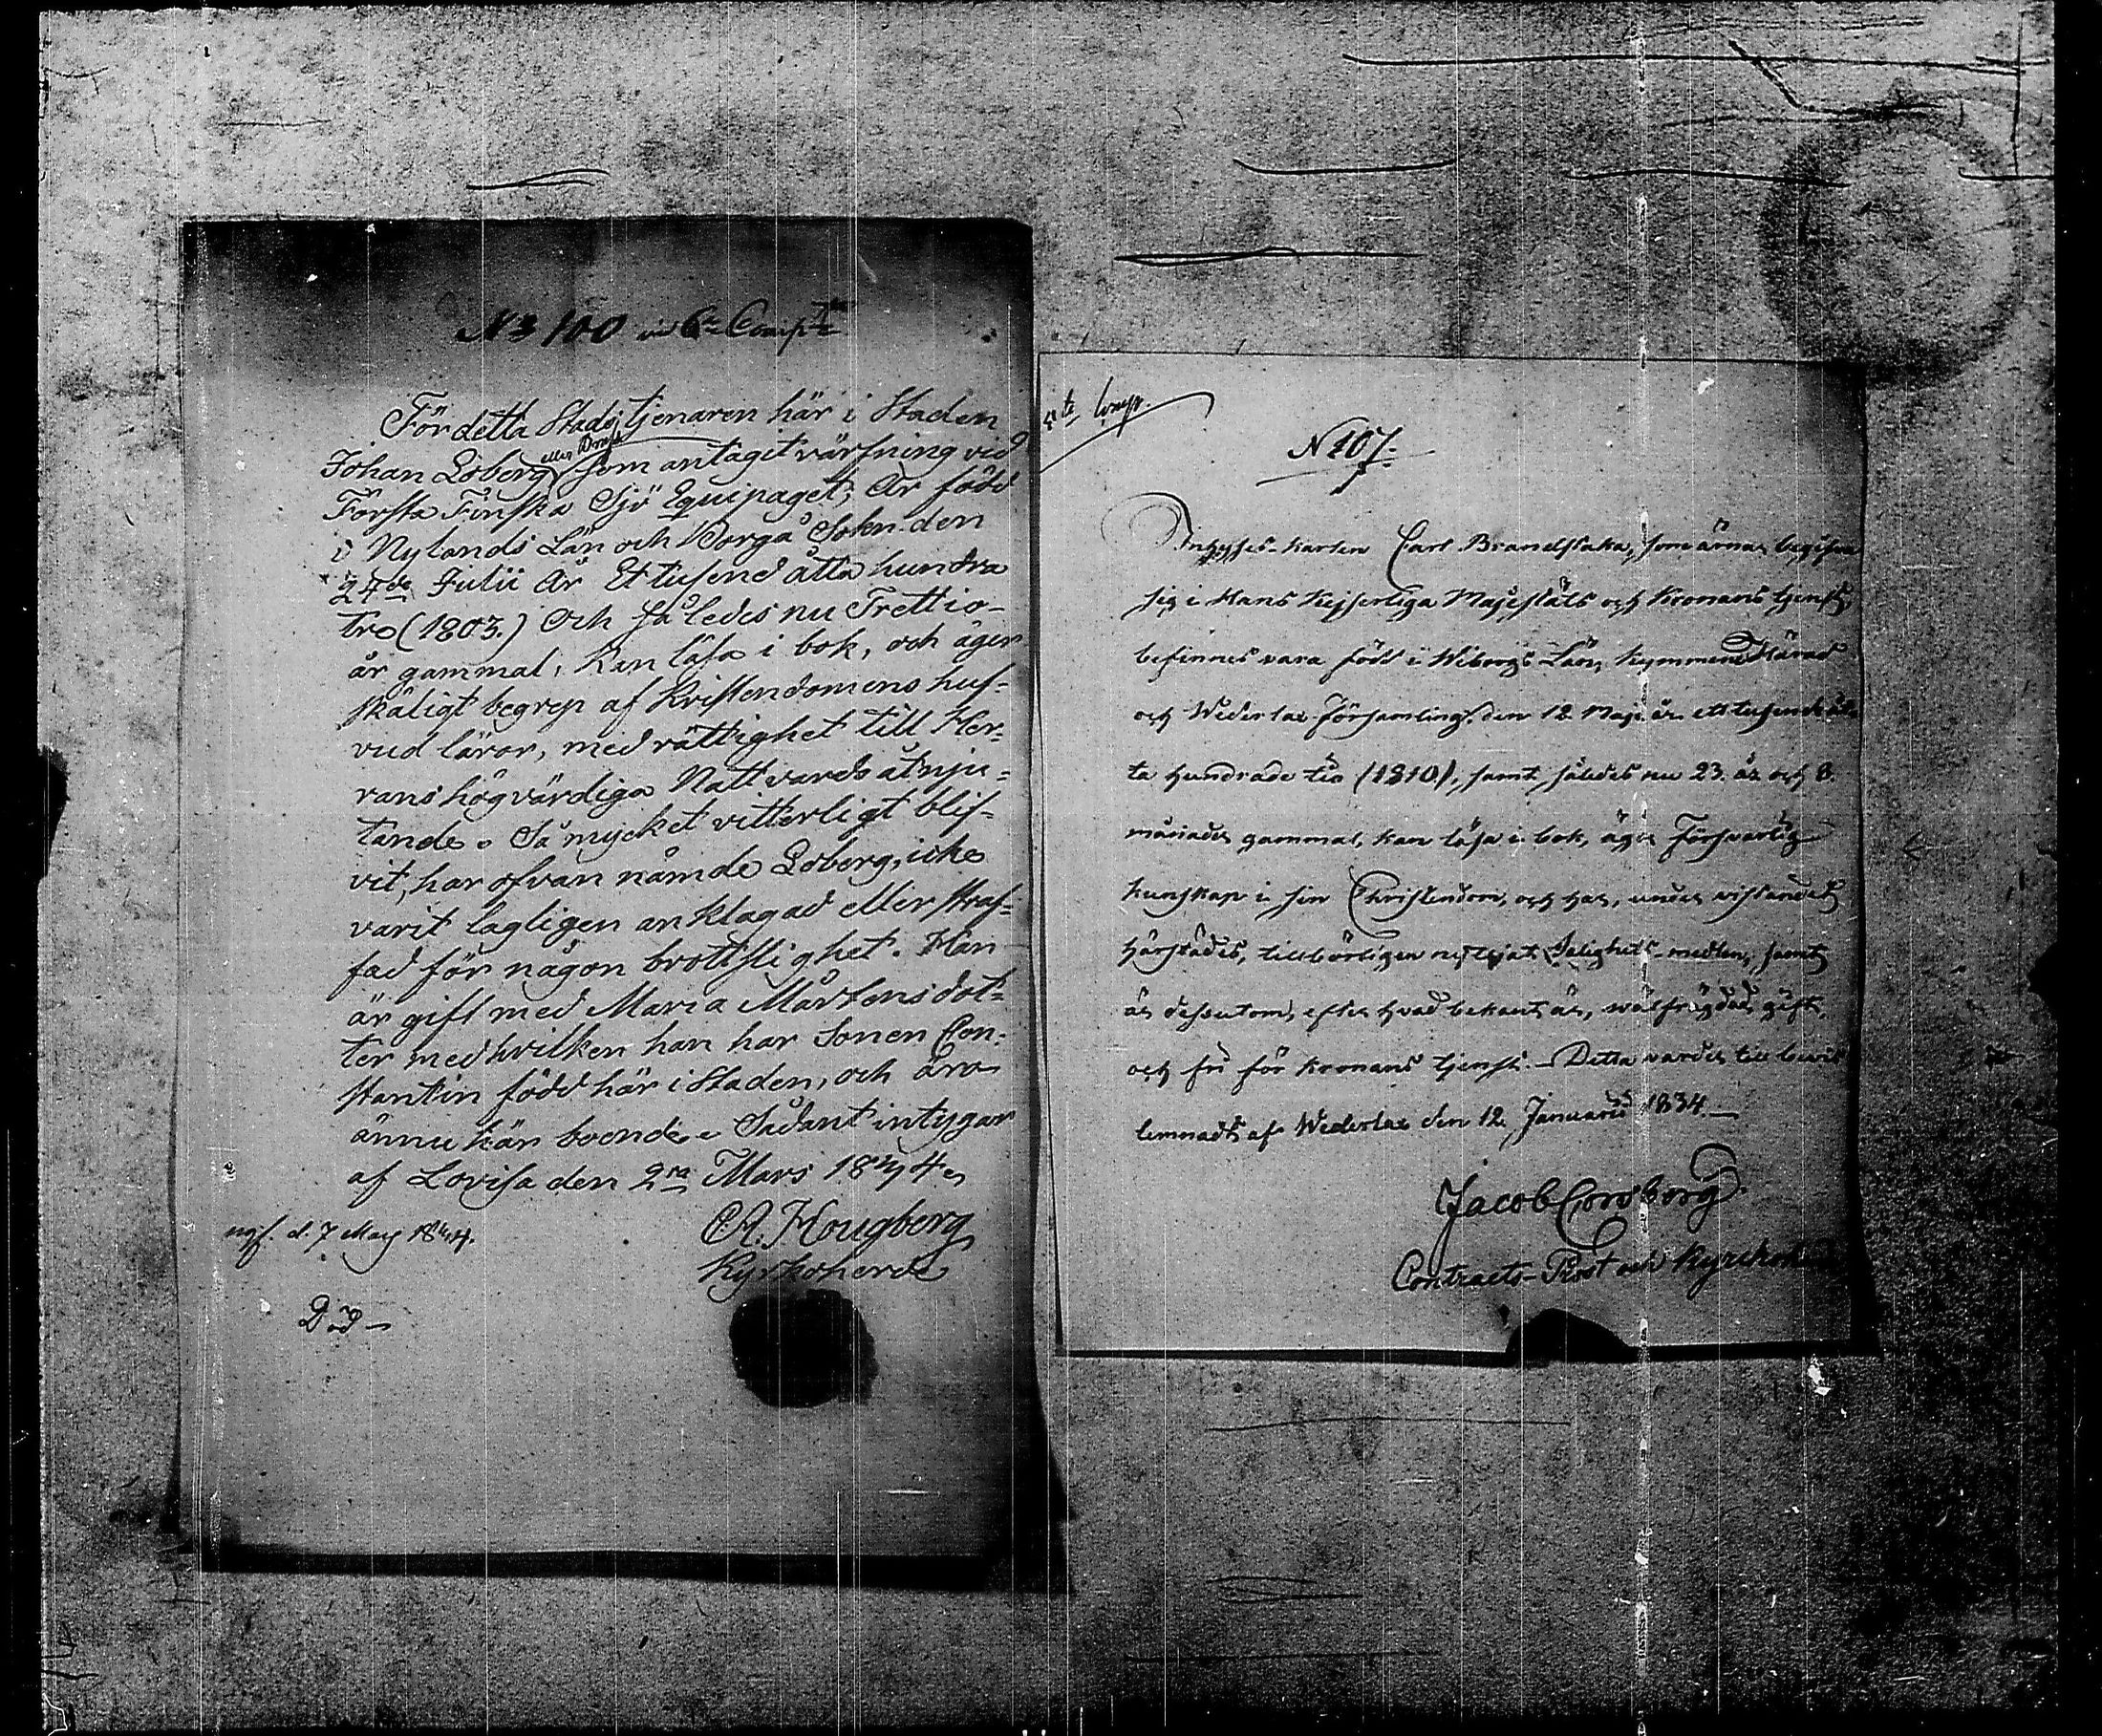 No 100 vid 6te Comp
För detta Stadstjenaren här i Staden
eller Dmf
Johan Loberg som antagit värfning vid
Första Finska Sjö Equipaget, Är född
i Nylands Län och Borgå Sokn den
24de Julii År Et tusend åtta hundra
tre (1803.) Och således nu Trettio-
år gammal, Kan läsa i bok, och äger
skäligt begrep af Kristendomens huf-
vud läror, med rättighet till Her-
rans högvärdiga Nattvards åtnju-
tande. Så mycket vitterligt blif-
vit, har ofvan nämde Loberg, icke
varit lagligen anklagad eller straf-
fad för någon brottslighet. Han
är gift med Maria Mårtensdot-
ter med hvilken han har Sonen Con-
stantin född här i Staden, och äro
ännu här boende. Sådant intygar
af Lovisa den 2ra Mars 1834.
C A. Hougberg
Kyrkoherde
d. 7 Mars 1834.
Död
5te Comp.
N 107.
Inhyses-karlen Carl Brandstaka, som ärnar begifva
sig i Hans Kejserliga Majestäts och Kronans tjenst,
befinnes vara född i Wiborgs Län, Kymmene Härad
och Wederlax församling den 12 Maji år ett tusende åt-
ta hundrade tio (1810), samt således nu 23. år och 8.
månader gammal, kan läsa i bok, äger försvarlig
kunskap i sin Christendom, och har, under vistandet
härstädes, tillbörligen nyttjat Salighets-medlen, samt
är dessutom, efter hvad bekant är, välfrägdad, gift,
och fri för Kronans tjenst. Detta varder till bevis
lemnadt, af Wederlax den 12 Januarii 1834
Jacob Cronborg
Contracts-Prost och Kyrckoh